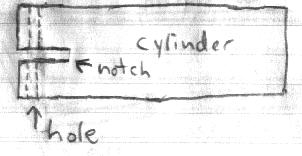 cylinder
notch
hole